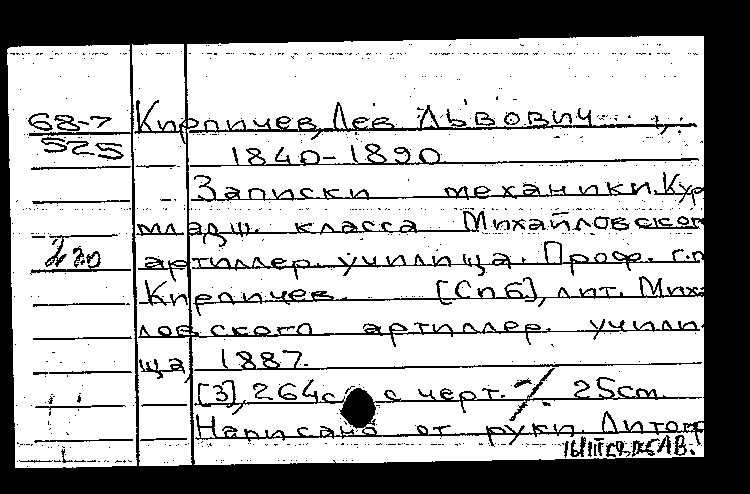 68-7 Кирпичев, Лев Львович
525 1840-1890
Записки механики. Кур
младш. класса Михайловског
220 артиллер. училища. Проф. г.-
Кирпичев. [Спб], лит. Миха
ловского артиллер. учили
ща, 1887.
[3], 264с с черт. 25см.
Написано от руки. Литогр